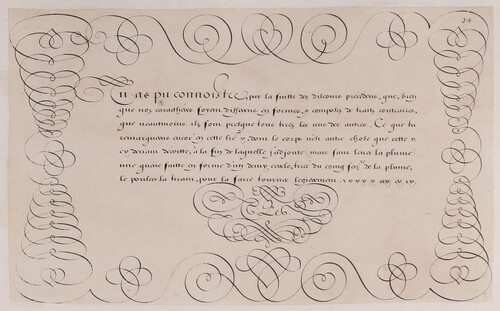 24
Tu as pu connoistre, par la suitte des discours precedens, que, bien
que nos caracthères soyent differens en formes, & composés de traits contraires,
que neantmoins ils sont presque tous tirés les uns des autres. Ce que tu
remarqueras encor en cette lié y, dont le corps n'est autre chose que cette v,
cy devant décritte, a la fin de laquelle j'adjoute, mais sans lever la plume
une queue faitte en forme d'un demy cercle, tirée du coing de la plume,
le poulce la tirant, pour la faire tourner legerement. v v v v y